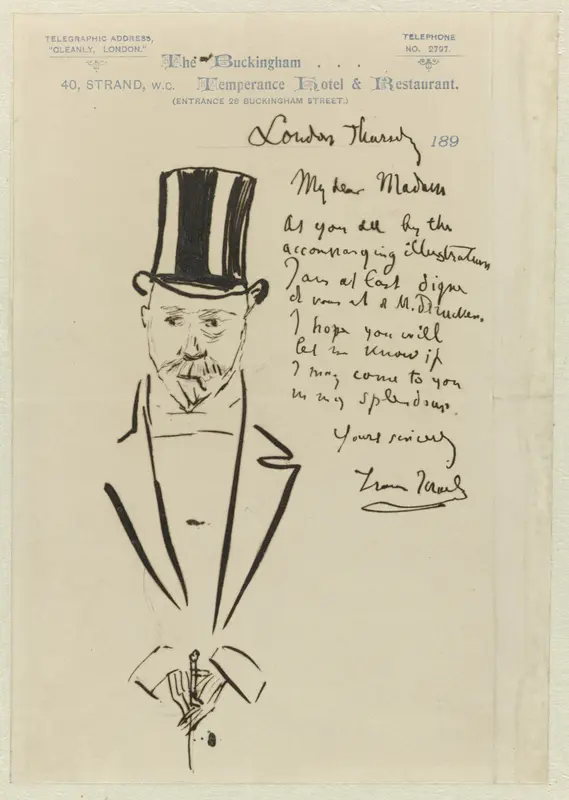 TELEGRAPHIC ADDRESS,
"CLEANLY, LONDON."
TELEPHONE
NO. 2797.
The Buckingham . . .
40, STRAND, W.C. Temperance Hotel & Restaurant.
(ENTRANCE 28 BUCKINGHAM STREET.)
London Thursdy 189
My dear Madam
As you see by the
accompanying illustration
I am at last digne
de vous et de M. Drucker.
I hope you will
let me know if
I may come to you
in my splendour.
Yours sincerely
Israels